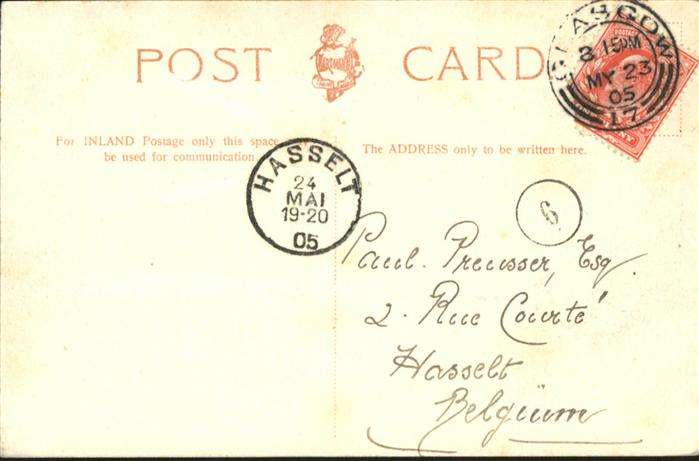 POST CARD
GLASGOW
8.15PM
MY 23
05
17
For INLAND Postage only this space
be used for communication
The ADDRESS only to be written here.
HASSELT
24
MAI
19-20
05
6
Paul. Preusser, Esq.
2. Rue Courte'
Hasselt
Belgium